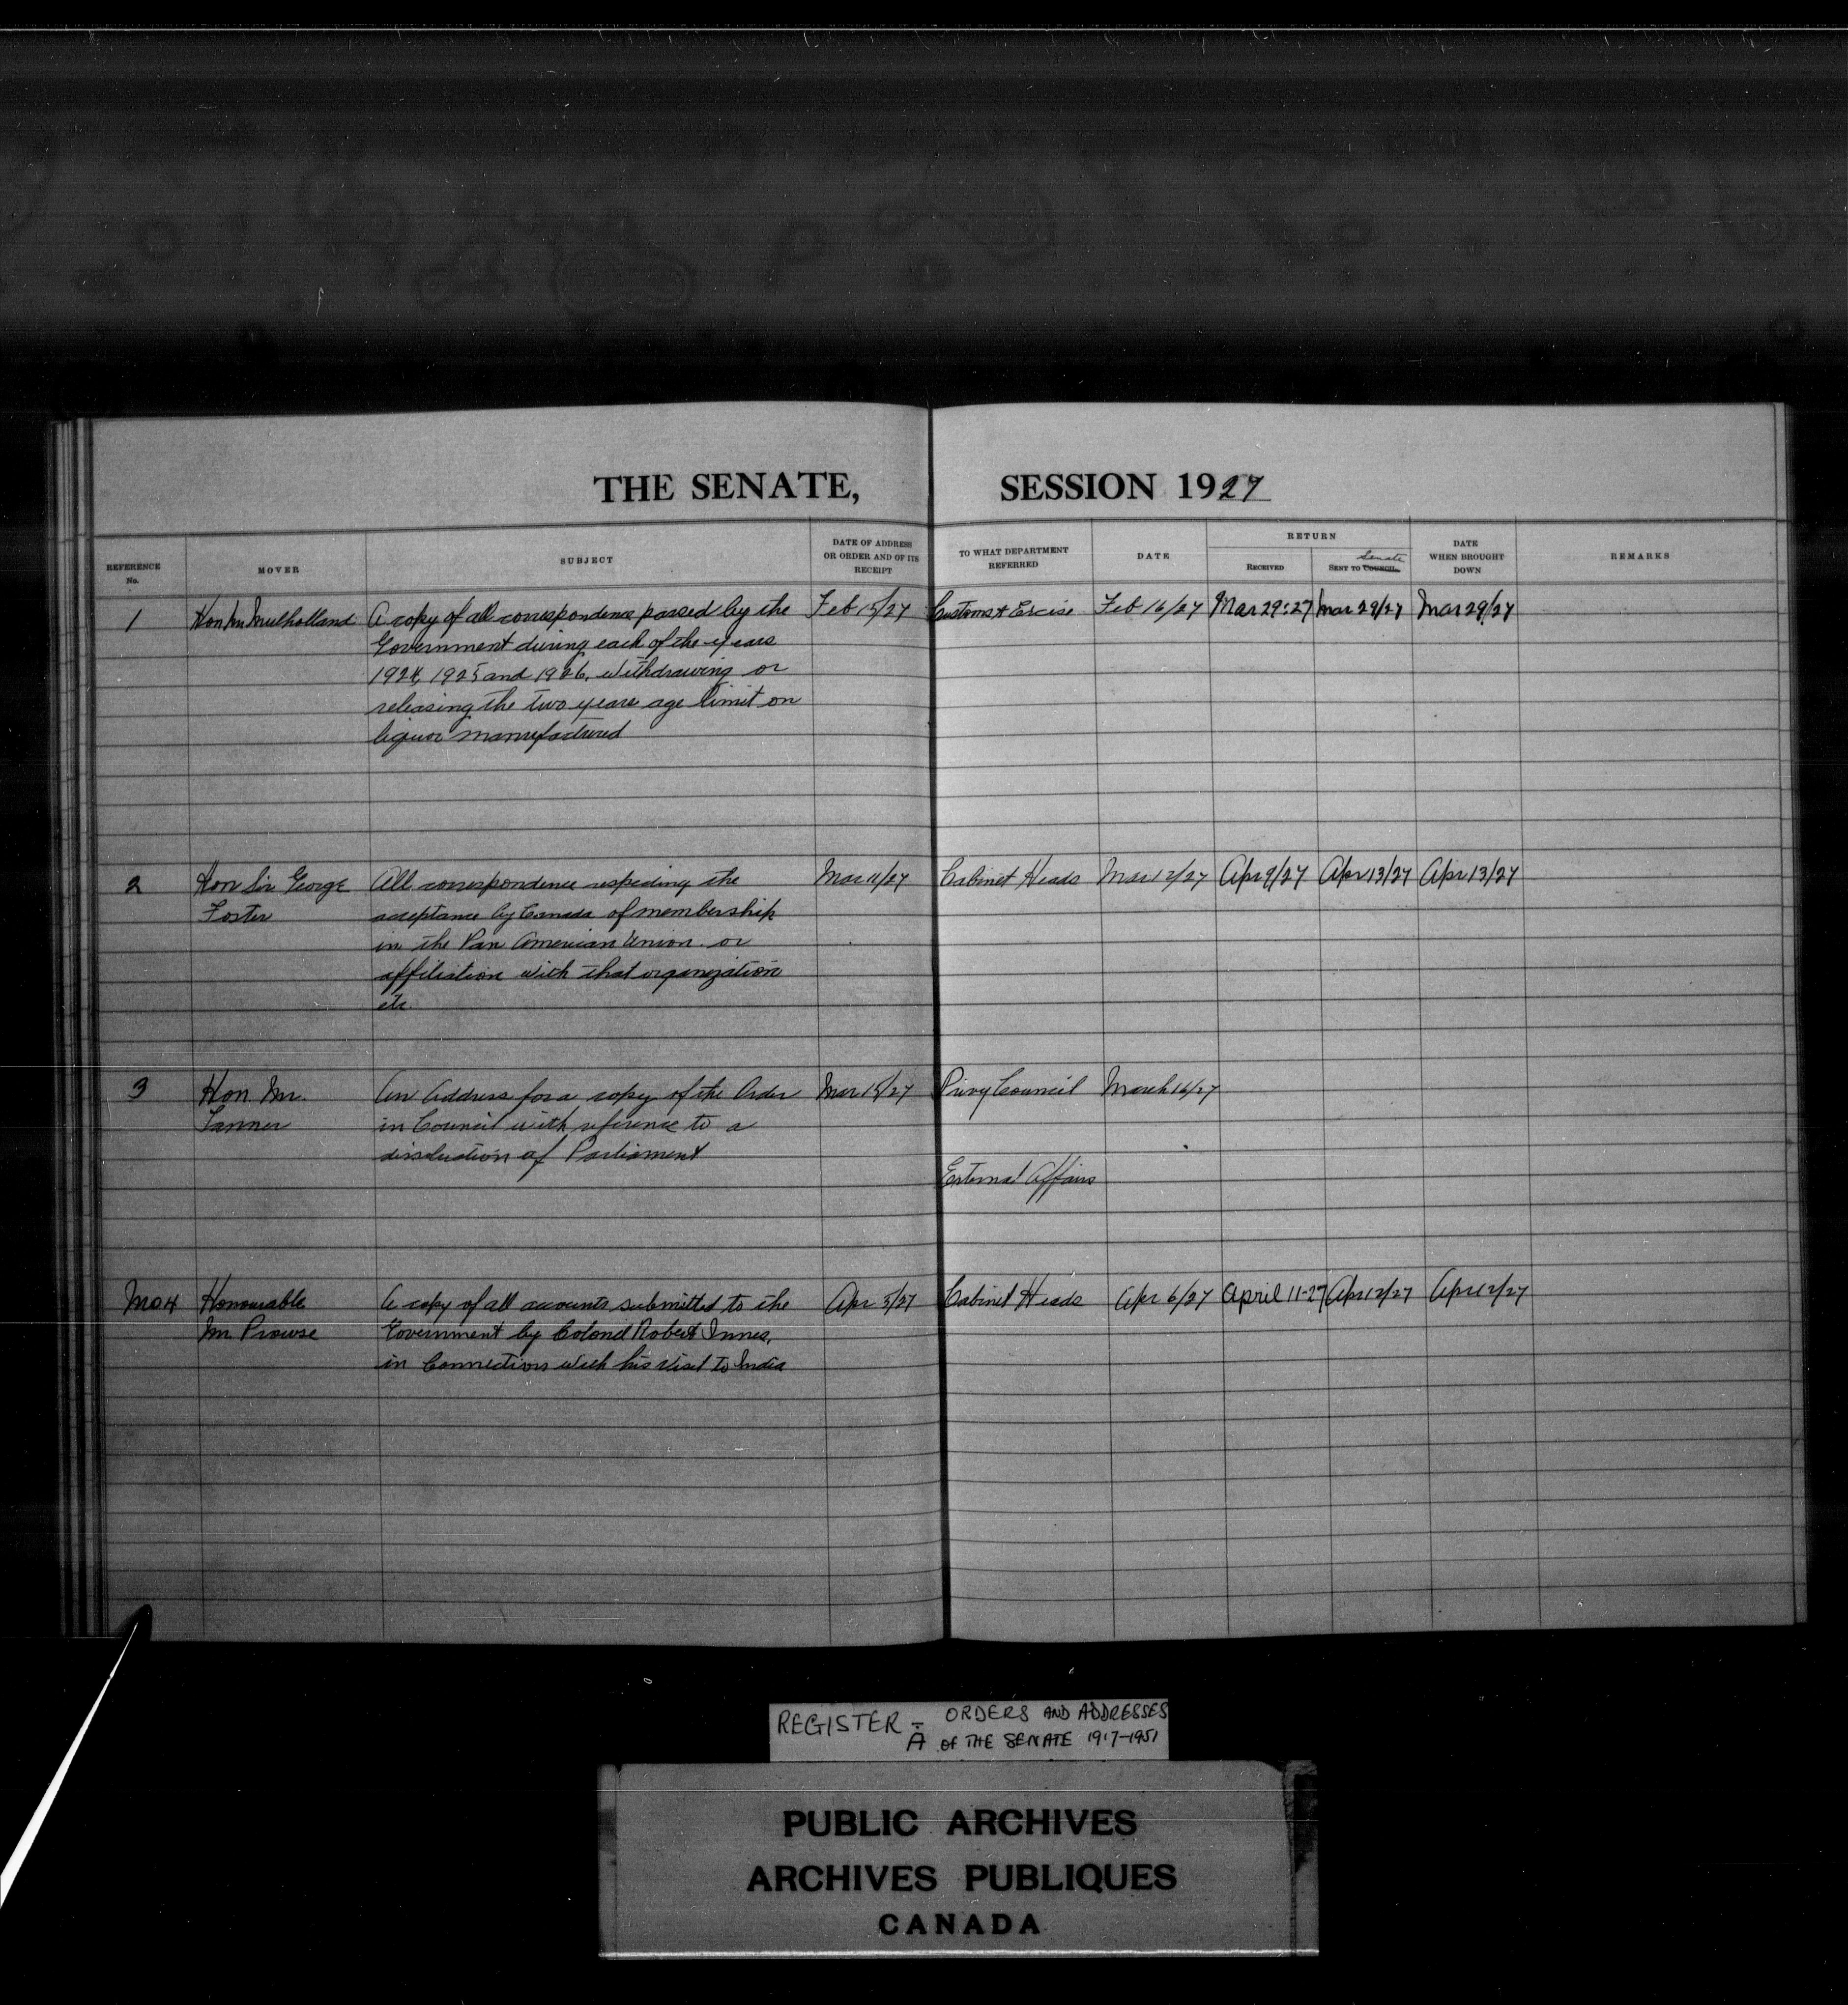 THE SENATE, SESSION 1927
REFERENCE No.
MOVER
SUBJECT
DATE OF ADDRESS OR ORDER AND OF ITS RECEIPT
TO WHAT DEPARTMENT REFERRED
DATE
RETURN
RECEIVED
Senate
SENT TO COUNCIL
DATE WHEN BROUGHT DOWN
REMARKS
1 Hon Mr Mulholland A copy of all correspondence passed by the Feb 15/27 Customs & Excise Feb 16/27 Mar 29:27 Mar 29/27 Mar 29/27
Government during each of the years
1924, 1925 and 1926, withdrawing or
releasing the two years age limit on
liquor manufactured
2 Hon Sir George All correspondence respecting the Mar 11/27 Cabinet Heads Mar 12/27 Apr 9/27 Apr 13/27 Apr 13/27
Foster acceptance by Canada of membership
in the Pan American Union or
affiliation with that organization
etc.
3 Hon Mr. An Address for a copy of the Order Mar 15/27 Privy Council March 16/27
Tanner in Council with reference to a
dissolution of Parliament
External Affairs
No 4 Honourable A copy of all accounts submitted to the Apr 5/27 Cabinet Heads Apr 6/27 April 11-27 Apr 12/27 Apr 12/27
Mr. Prowse Government by Colonel Robert Innes,
in Connection with his visit to India
REGISTER - ORDERS AND ADDRESSES
A OF THE SENATE 1917-1951
PUBLIC ARCHIVES
ARCHIVES PUBLIQUES
CANADA